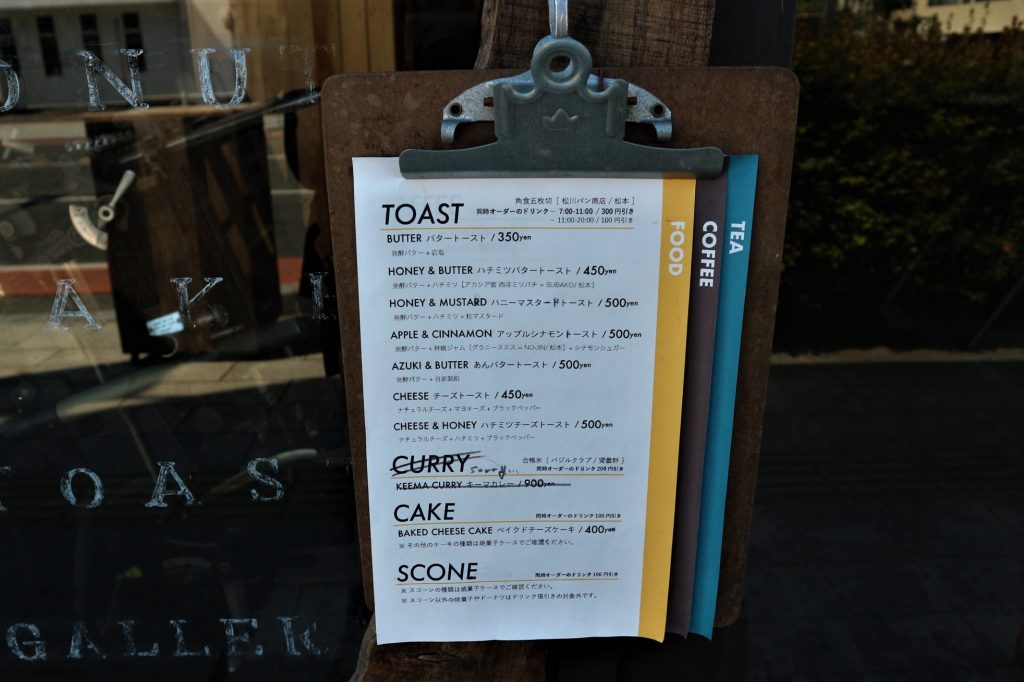 ONUT
AKE
TOAST
GALLER
FOOD
COFFEE
TEA
角食五枚切 [ 松川パン商店 / 松本 ]
TOAST 同時オーダーのドリンク – 7:00-11:00 / 300 円引き
– 11:00-20:00 / 100 円引き
BUTTER バタートースト / 350yen
発酵バター + 岩塩
HONEY & BUTTER ハチミツバタートースト / 450yen
発酵バター + ハチミツ [ アカシア蜜 西洋ミツバチ = SUBAKO/ 松本 ]
HONEY & MUSTARD ハニーマスタードトースト / 500yen
発酵バター + ハチミツ + 粒マスタード
APPLE & CINNAMON アップルシナモントースト / 500yen
発酵バター + 林檎ジャム [ グラニースミス = NO-JIN/ 松本 ] + シナモンシュガー
AZUKI & BUTTER あんバタートースト / 500yen
発酵バター + 自家製餡
CHEESE チーズトースト / 450yen
ナチュラルチーズ + マヨネーズ + ブラックペッパー
CHEESE & HONEY ハチミツチーズトースト / 500yen
ナチュラルチーズ + ハチミツ + ブラックペッパー
合鴨米 [ バジルクラブ / 安曇野 ]
CURRY sorry... 同時オーダーのドリンク 200 円引き
KEEMA CURRY キーマカレー / 900yen
CAKE 同時オーダーのドリンク 100 円引き
BAKED CHEESE CAKE ベイクドチーズケーキ / 400yen
※ その他のケーキの種類は焼菓子ケースでご確認ください。
SCONE 同時オーダーのドリンク 100 円引き
※ スコーンの種類は焼菓子ケースでご確認ください。
※ スコーン以外の焼菓子やドーナツはドリンク値引きの対象外です。